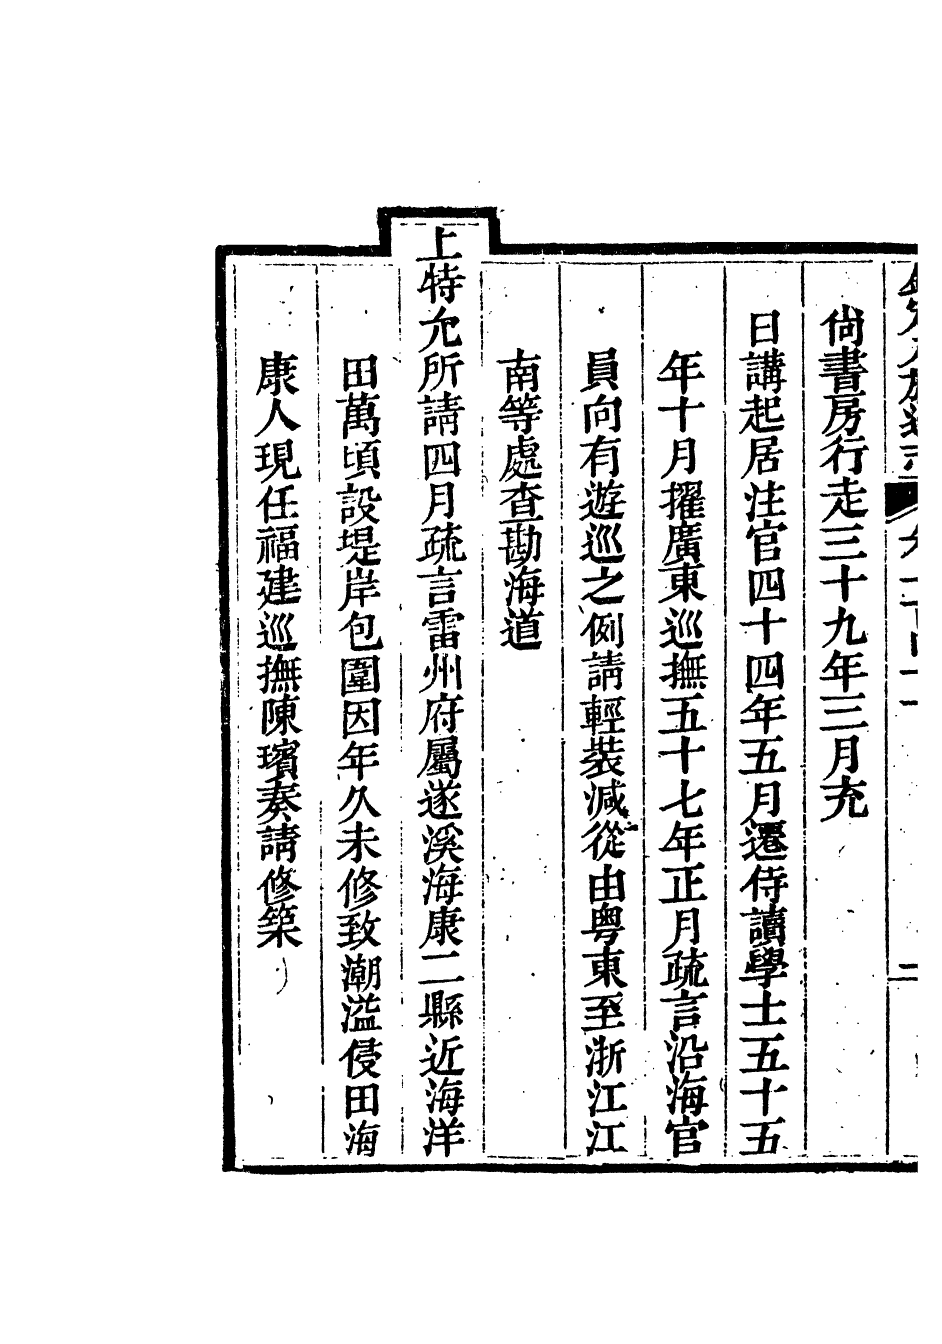 尙書房行走三十九年三月充
日講起居注官四十四年五月遷侍讀學士五十五
年十月擢廣東巡撫五十七年正月疏言沿海官
員向有遊巡之例請輕裝減從由粤東至浙江江
南等處查勘海道
上特允所請四月疏言雷州府屬遂溪海康二縣近海洋
田萬頃設堤岸包圍因年久未修致潮溢侵田海
康人現任福建巡撫陳璸奏請修築